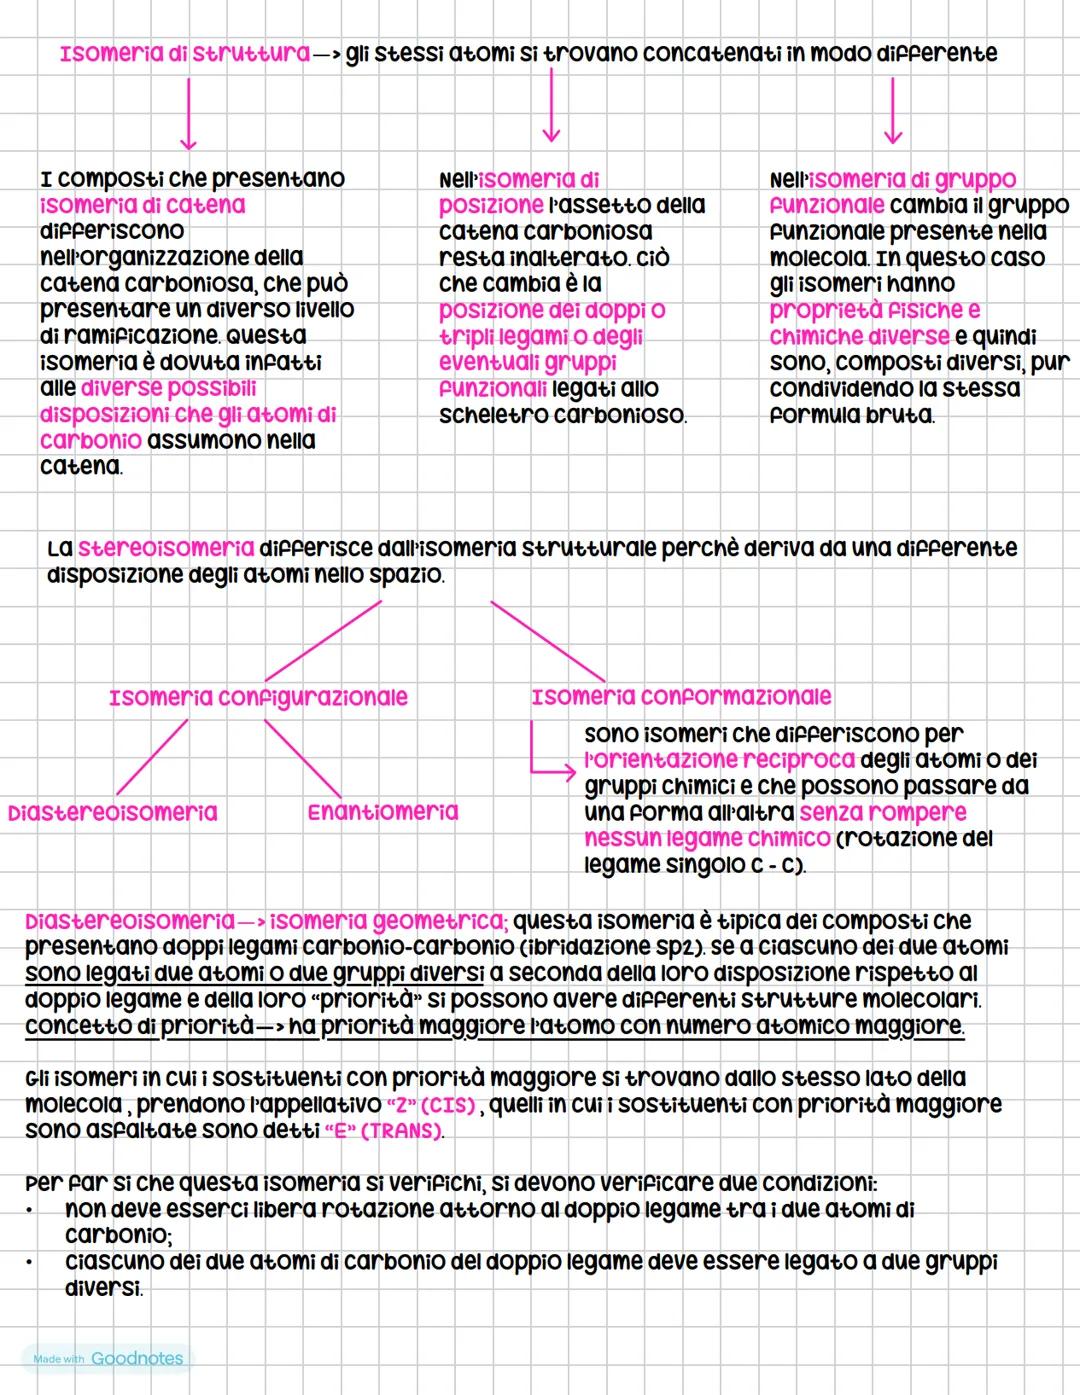 Isomeria di struttura —> gli stessi atomi si trovano concatenati in modo differente
I composti che presentano
isomeria di catena
differiscono
nell'organizzazione della
catena carboniosa, che può
presentare un diverso livello
di ramificazione. Questa
isomeria è dovuta infatti
alle diverse possibili
disposizioni che gli atomi di
carbonio assumono nella
catena.
Nell'isomeria di
posizione l'assetto della
catena carboniosa
resta inalterato. Ciò
che cambia è la
posizione dei doppi o
tripli legami o degli
eventuali gruppi
funzionali legati allo
scheletro carbonioso.
Nell'isomeria di gruppo
funzionale cambia il gruppo
funzionale presente nella
molecola. In questo caso
gli isomeri hanno
proprietà fisiche e
chimiche diverse e quindi
sono, composti diversi, pur
condividendo la stessa
formula bruta.
La stereoisomeria differisce dall'isomeria strutturale perchè deriva da una differente
disposizione degli atomi nello spazio.
Isomeria configurazionale
Isomeria conformazionale
sono isomeri che differiscono per
l'orientazione reciproca degli atomi o dei
gruppi chimici e che possono passare da
una forma all'altra senza rompere
nessun legame chimico (rotazione del
legame singolo C - C).
Diastereoisomeria
Enantiomeria
Diastereoisomeria —> isomeria geometrica; questa isomeria è tipica dei composti che
presentano doppi legami carbonio-carbonio (ibridazione sp2). se a ciascuno dei due atomi
sono legati due atomi o due gruppi diversi a seconda della loro disposizione rispetto al
doppio legame e della loro “priorità” si possono avere differenti strutture molecolari.
concetto di priorità —> ha priorità maggiore l'atomo con numero atomico maggiore.
Gli isomeri in cui i sostituenti con priorità maggiore si trovano dallo stesso lato della
molecola , prendono l'appellativo “Z” (CIS) , quelli in cui i sostituenti con priorità maggiore
sono asfaltate sono detti “E” (TRANS).
Per far si che questa isomeria si verifichi, si devono verificare due condizioni:
• non deve esserci libera rotazione attorno al doppio legame tra i due atomi di
carbonio;
• ciascuno dei due atomi di carbonio del doppio legame deve essere legato a due gruppi
diversi.
Made with Goodnotes